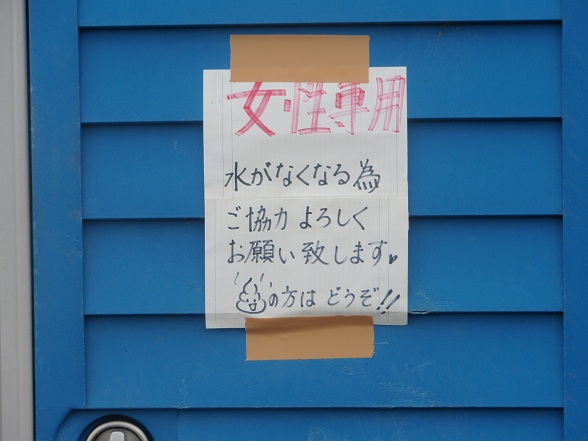 女性専用
水がなくなる為
ご協力よろしく
お願い致します♥
の方はどうぞ!!